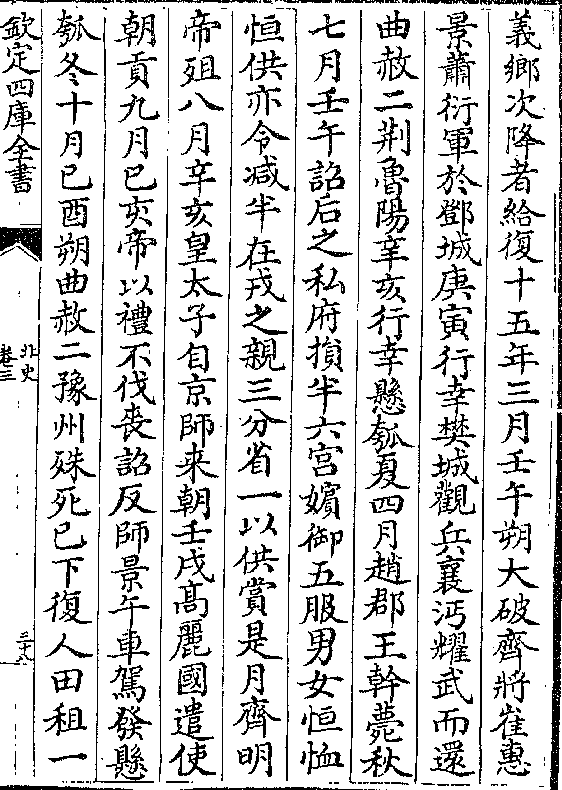 義鄉次降者給復十五年三月壬午朔大破齊將崔惠
景蕭衍軍於鄧城庚寅行幸樊城觀兵襄沔耀武而還
曲赦二荆魯陽辛亥行幸懸瓠夏四月趙郡王幹薨秋
七月壬午詔后之私府損半六宫嬪御五服男女恒恤
恒供亦令减半在戎之親三分省一以供賞是月齊明
帝殂八月辛亥皇太子自京師来朝壬戌高麗國遣使
朝貢九月巳亥帝以禮不伐喪詔反師景午車駕發懸
瓠冬十月巳酉朔曲赦二豫州殊死巳下復人田租一
欽定四庫全書
北史
卷三
三十八